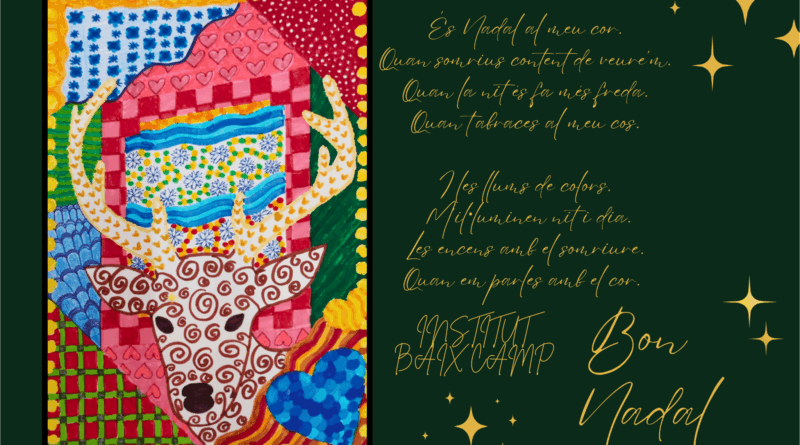 És Nadal al meu cor.
Quan somrius content de veure'm.
Quan la nit es fa més freda.
Quan t'abraces al meu cos.
I les llums de colors.
M'il·luminen nit i dia.
Les encens amb el somriure.
Quan em parles amb el cor.
INSTITUT
BAIX CAMP
Bon
Nadal